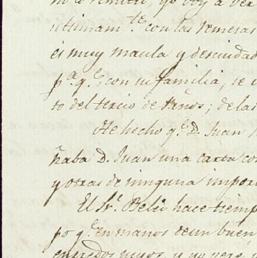 no lo remitir, yo voy a ver
ultimam.te con las temeras
es muy maula y descuidad
p.a q.e con su familia, se
to del tercio de Paños; de las
He hecho q.e D. Juan
ñaba D. Juan una carta con
y otras de ninguna impor
El S.r Belio hace tiemp
po q.e en manos de un buen